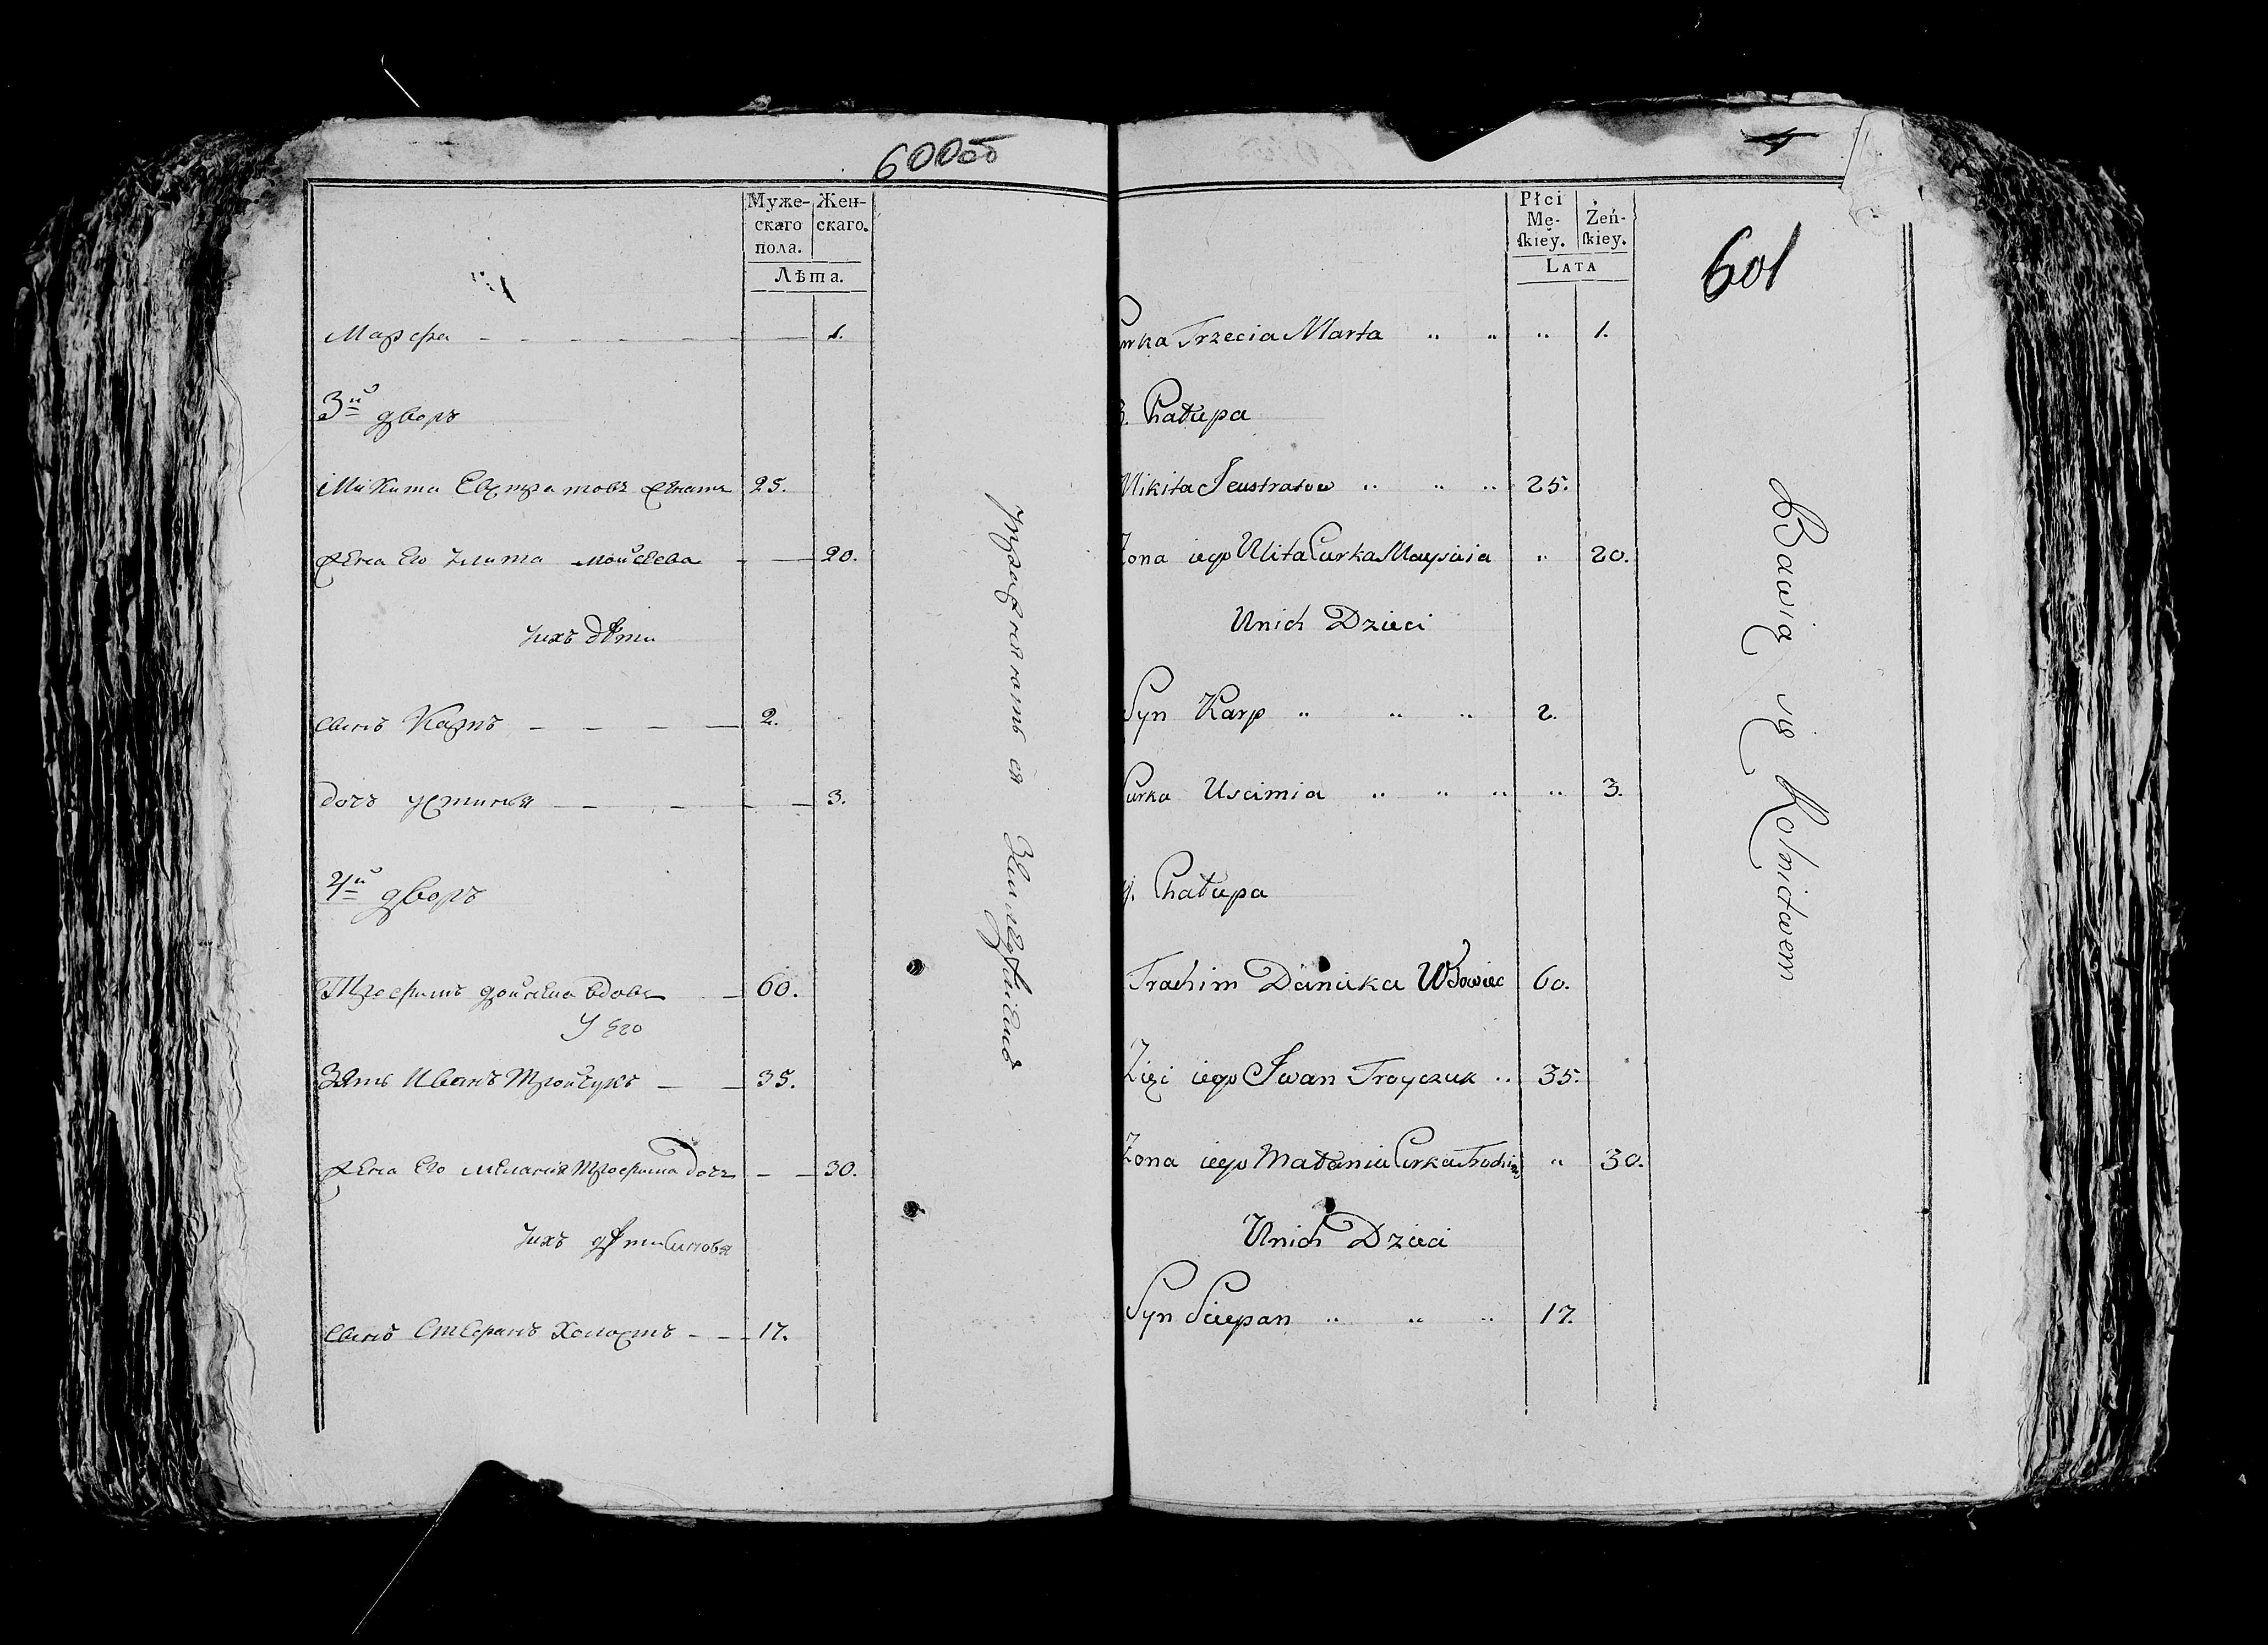 600об
Муже-
скаго
пола.
Жен-
скаго.
Лѣта.
Марфа 1.
3й дворъ
Микита Евстратовъ женатъ 25.
жена Его Улита Мойсеева 20.
У ихъ дѣти
сынъ Карпъ 2.
дочь Устинья 3.
4й дворъ
Трофимъ вдовъ 60.
У Его
Зять Иванъ Тройчукъ 35.
жена Его Меланія Трофима дочь 30.
У ихъ дѣти Синовя
сынъ Стефанъ Холостъ 17.
упражняются Земледѣліемъ
4
Płci
Mę-
skiey.
Żeń-
skiey.
LATA
601
Curka Trzecia Marta " " " 1.
3. Chałupa
Mikita Jeustratow " " " 25.
Zona iego Ulita Curka Maysieia " 20.
Unich Dzieci
Syn Karp " " " 2.
Curka Uscimia " " " " 3.
4. Chałupa
Trachim Wdowiec 60.
Zięć iego Iwan Troyczuk " 35.
Zona iego Małania Curka Trochima " 30.
Unich Dzieci
Syn Sciepan " " " 17.
Bawią się Rolnictwem